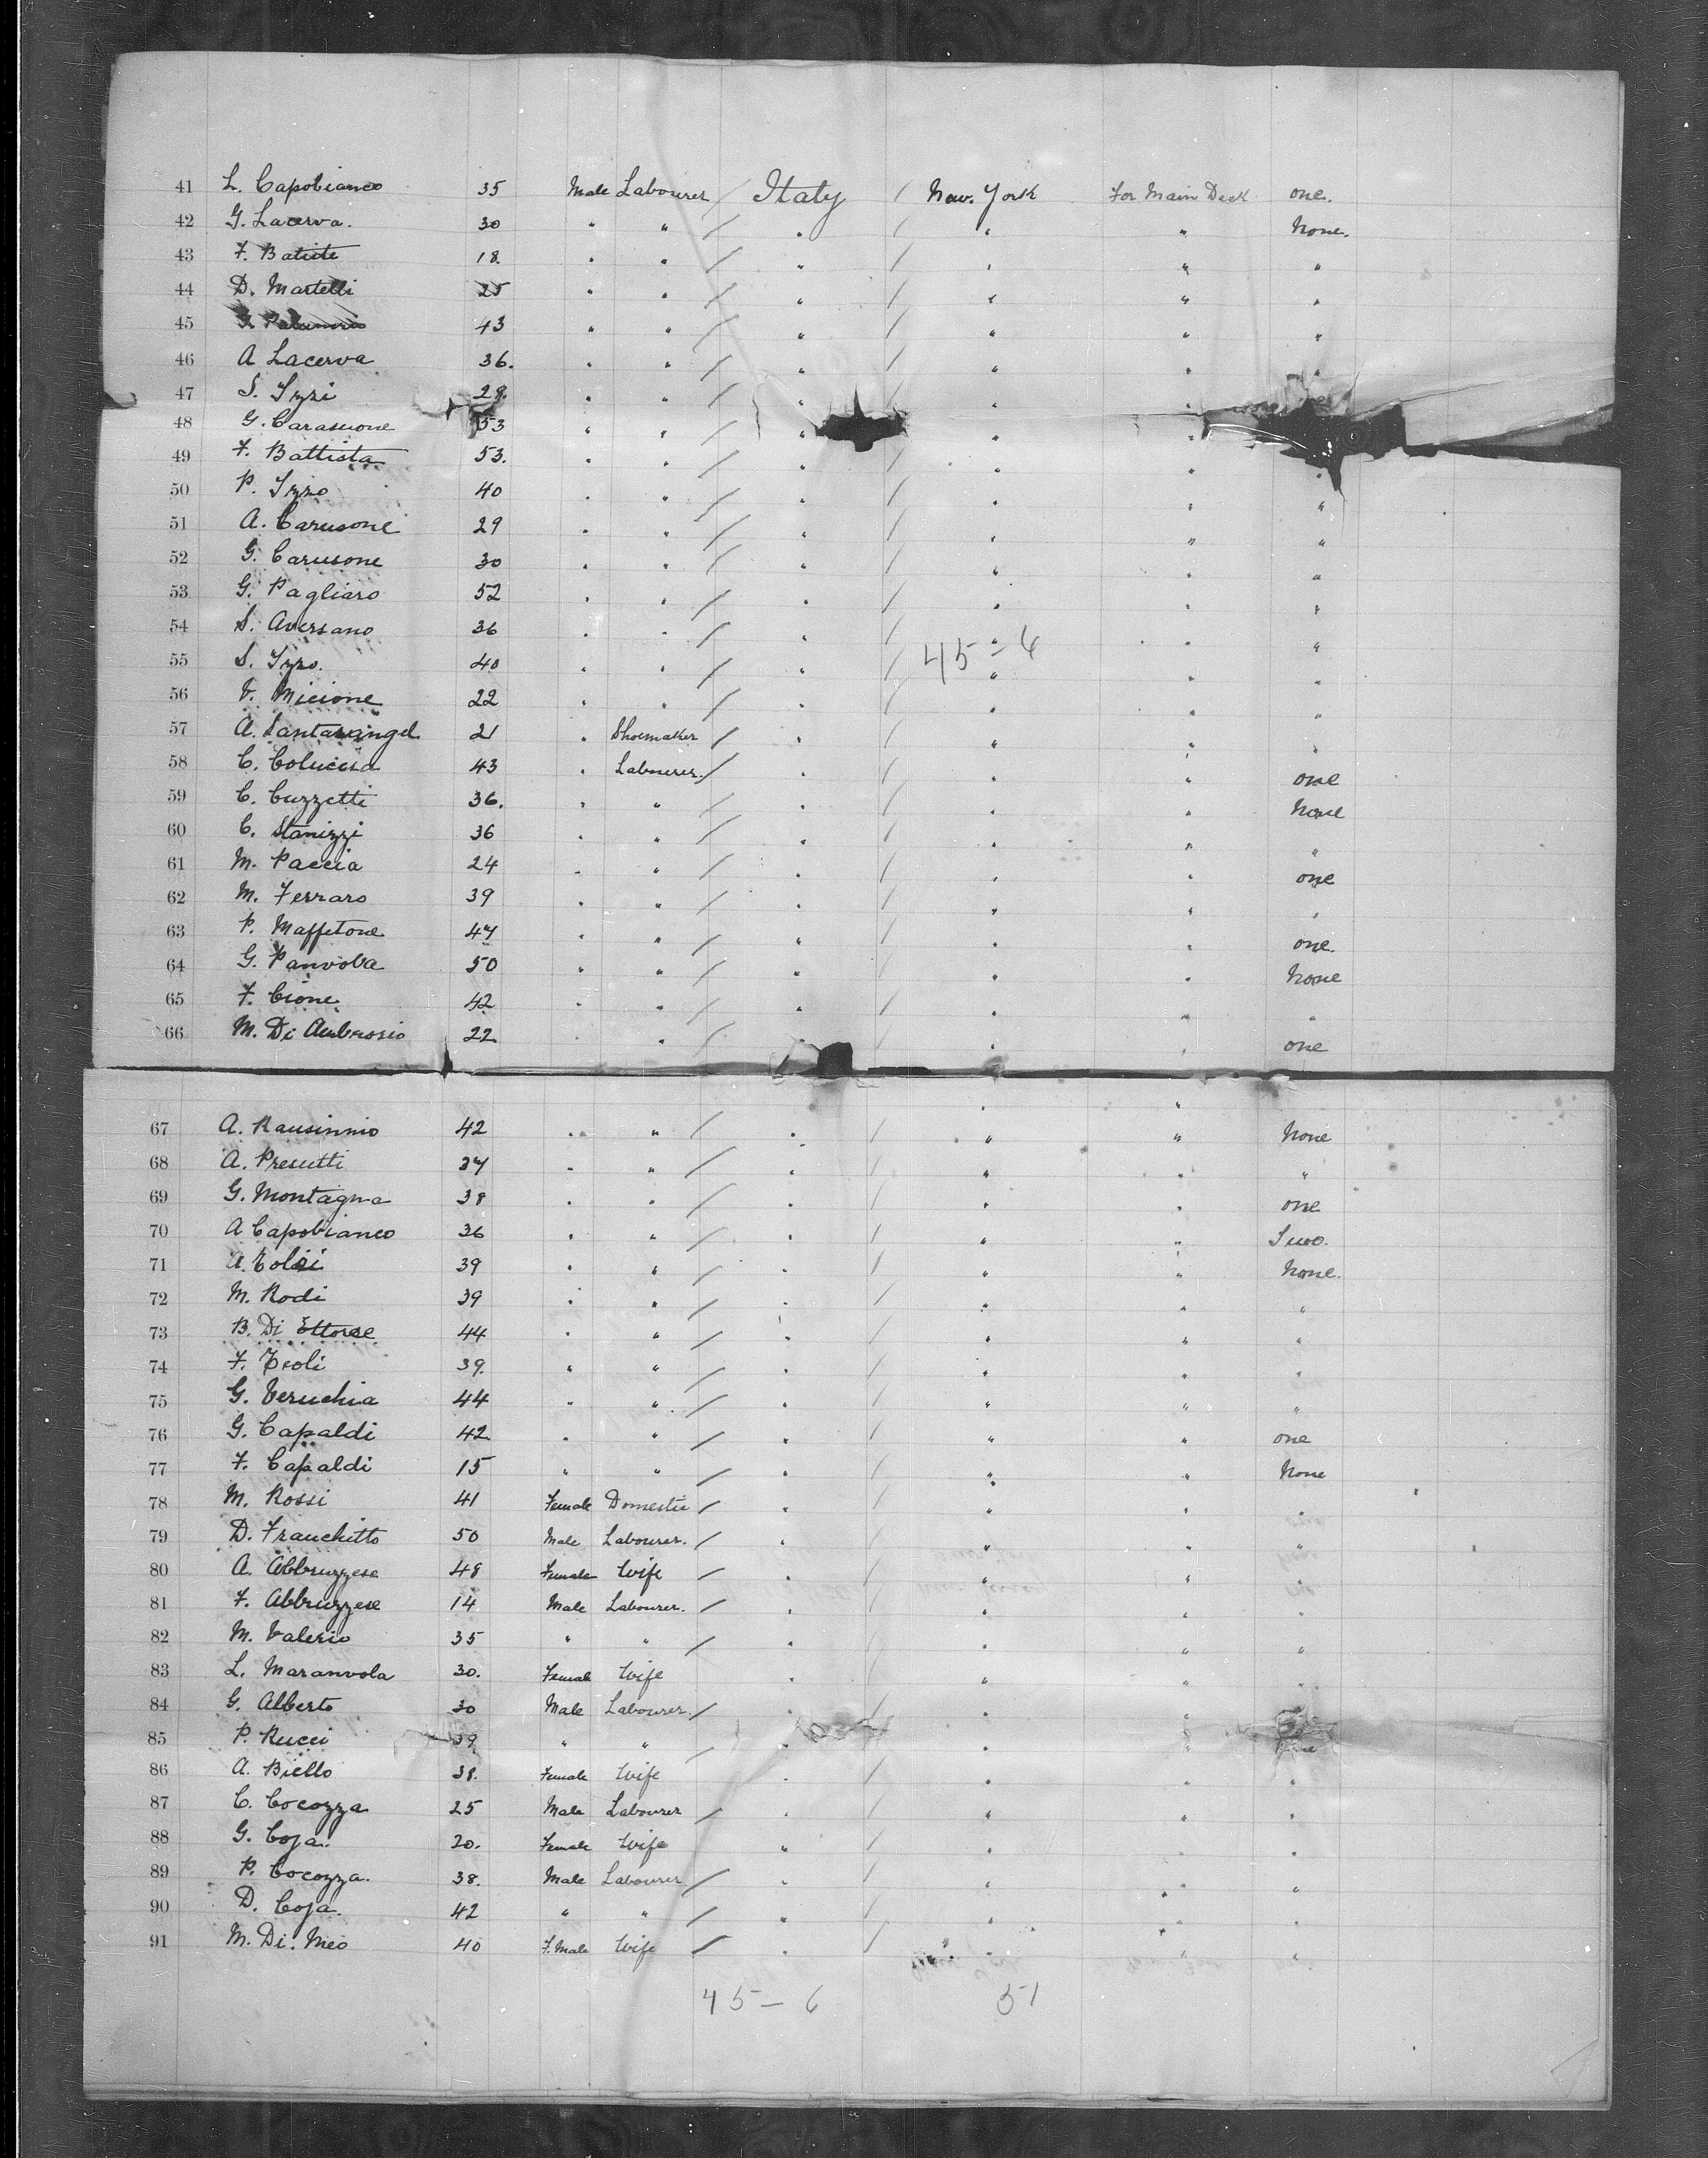 41 L. Capobianco 35 Male Labourer / Italy / New. York For Main Deck one.
42 G. Lacerva. 30 " " / " / " " None.
43 F. Batiste 18. " " / " / " " "
44 D. Martelli 25 " " / " / " " "
45 43 " " / " / " " "
46 A Lacerva 36. " " / " / " " "
47 S. Izzi 29. " " / " / " "
48 G. Carasuone 53 " " / " / " "
49 F. Battista 53. " " / " / " " "
50 P. Izzo 40 " " / " / " " "
51 A. Carusone 29 " " / " / " " "
52 G. Carusone 30 " " / " / " " "
53 G. Pagliaro 52 " " / " / " " "
54 S. Aversano 36 " " / " / " " "
45 - 6
55 S. Izzo. 40 " " / " / " " "
56 V. Micione 22 " " / " / " " "
57 A. Santarangel 21 " Shoemaker / " / " " "
58 C. Coluccia 43 " Labourer. / " / " " one
59 C. Cuzzetti 36. " " / " / " " None
60 C. Stanizzi 36 " " / " / " " "
61 M. Paccia 24 " " / " / " " one
62 M. Ferraro 39 " " / " / " " "
63 P. Maffetone 47 " " / " / " " one.
64 G. Panvola 50 " " / " / " " None
65 F. Cione 42 " " / " / " " "
66 M. Di Ambrosio 22 " " / " / " " one
" "
67 A. Rausinnio 42 " " / " / " " None
68 A. Presutti 37 " " / " / " " "
69 G. Montagna 38 " " / " / " " one
70 A Capobianco 36 " " / " / " " Two.
71 A. Tolsi 39 " " / " / " " None.
72 M. Rodi 39 " " / " / " " "
73 B. Di Ettorre 44 " " / " / " " "
74 F. Teoli 39. " " / " / " " "
75 G. Veruchia 44 " " / " / " " "
76 G. Capaldi 42 " " / " / " " one
77 F. Capaldi 15 " " / " / " " None
78 M. Rossi 41 Female Domestic / " / " " "
79 D. Franchitto 50 Male Labourer. / " / " " "
80 A. Abbruzzese 48 Female Wife / " / " " "
81 F. Abbruzzese 14 Male Labourer. / " / " " "
82 M. Valerio 35 " " / " / " " "
83 L. Maranvola 30. Female Wife " / " " "
84 G. Alberto 30 Male Labourer. / " / " "
85 P. Rucci 39 " " / " / " "
86 A. Biello 38. Female Wife " / " " "
87 C. Cocozza 25 Male Labourer / " / " " "
88 G. Coja. 20. Female Wife " / " " "
89 P. Cocozza. 38. Male Labourer / " / " " "
90 D. Coja. 42 " " / " / " " "
91 M. Di. Meo 40 F.Male Wife / " / " " "
45 - 6 51